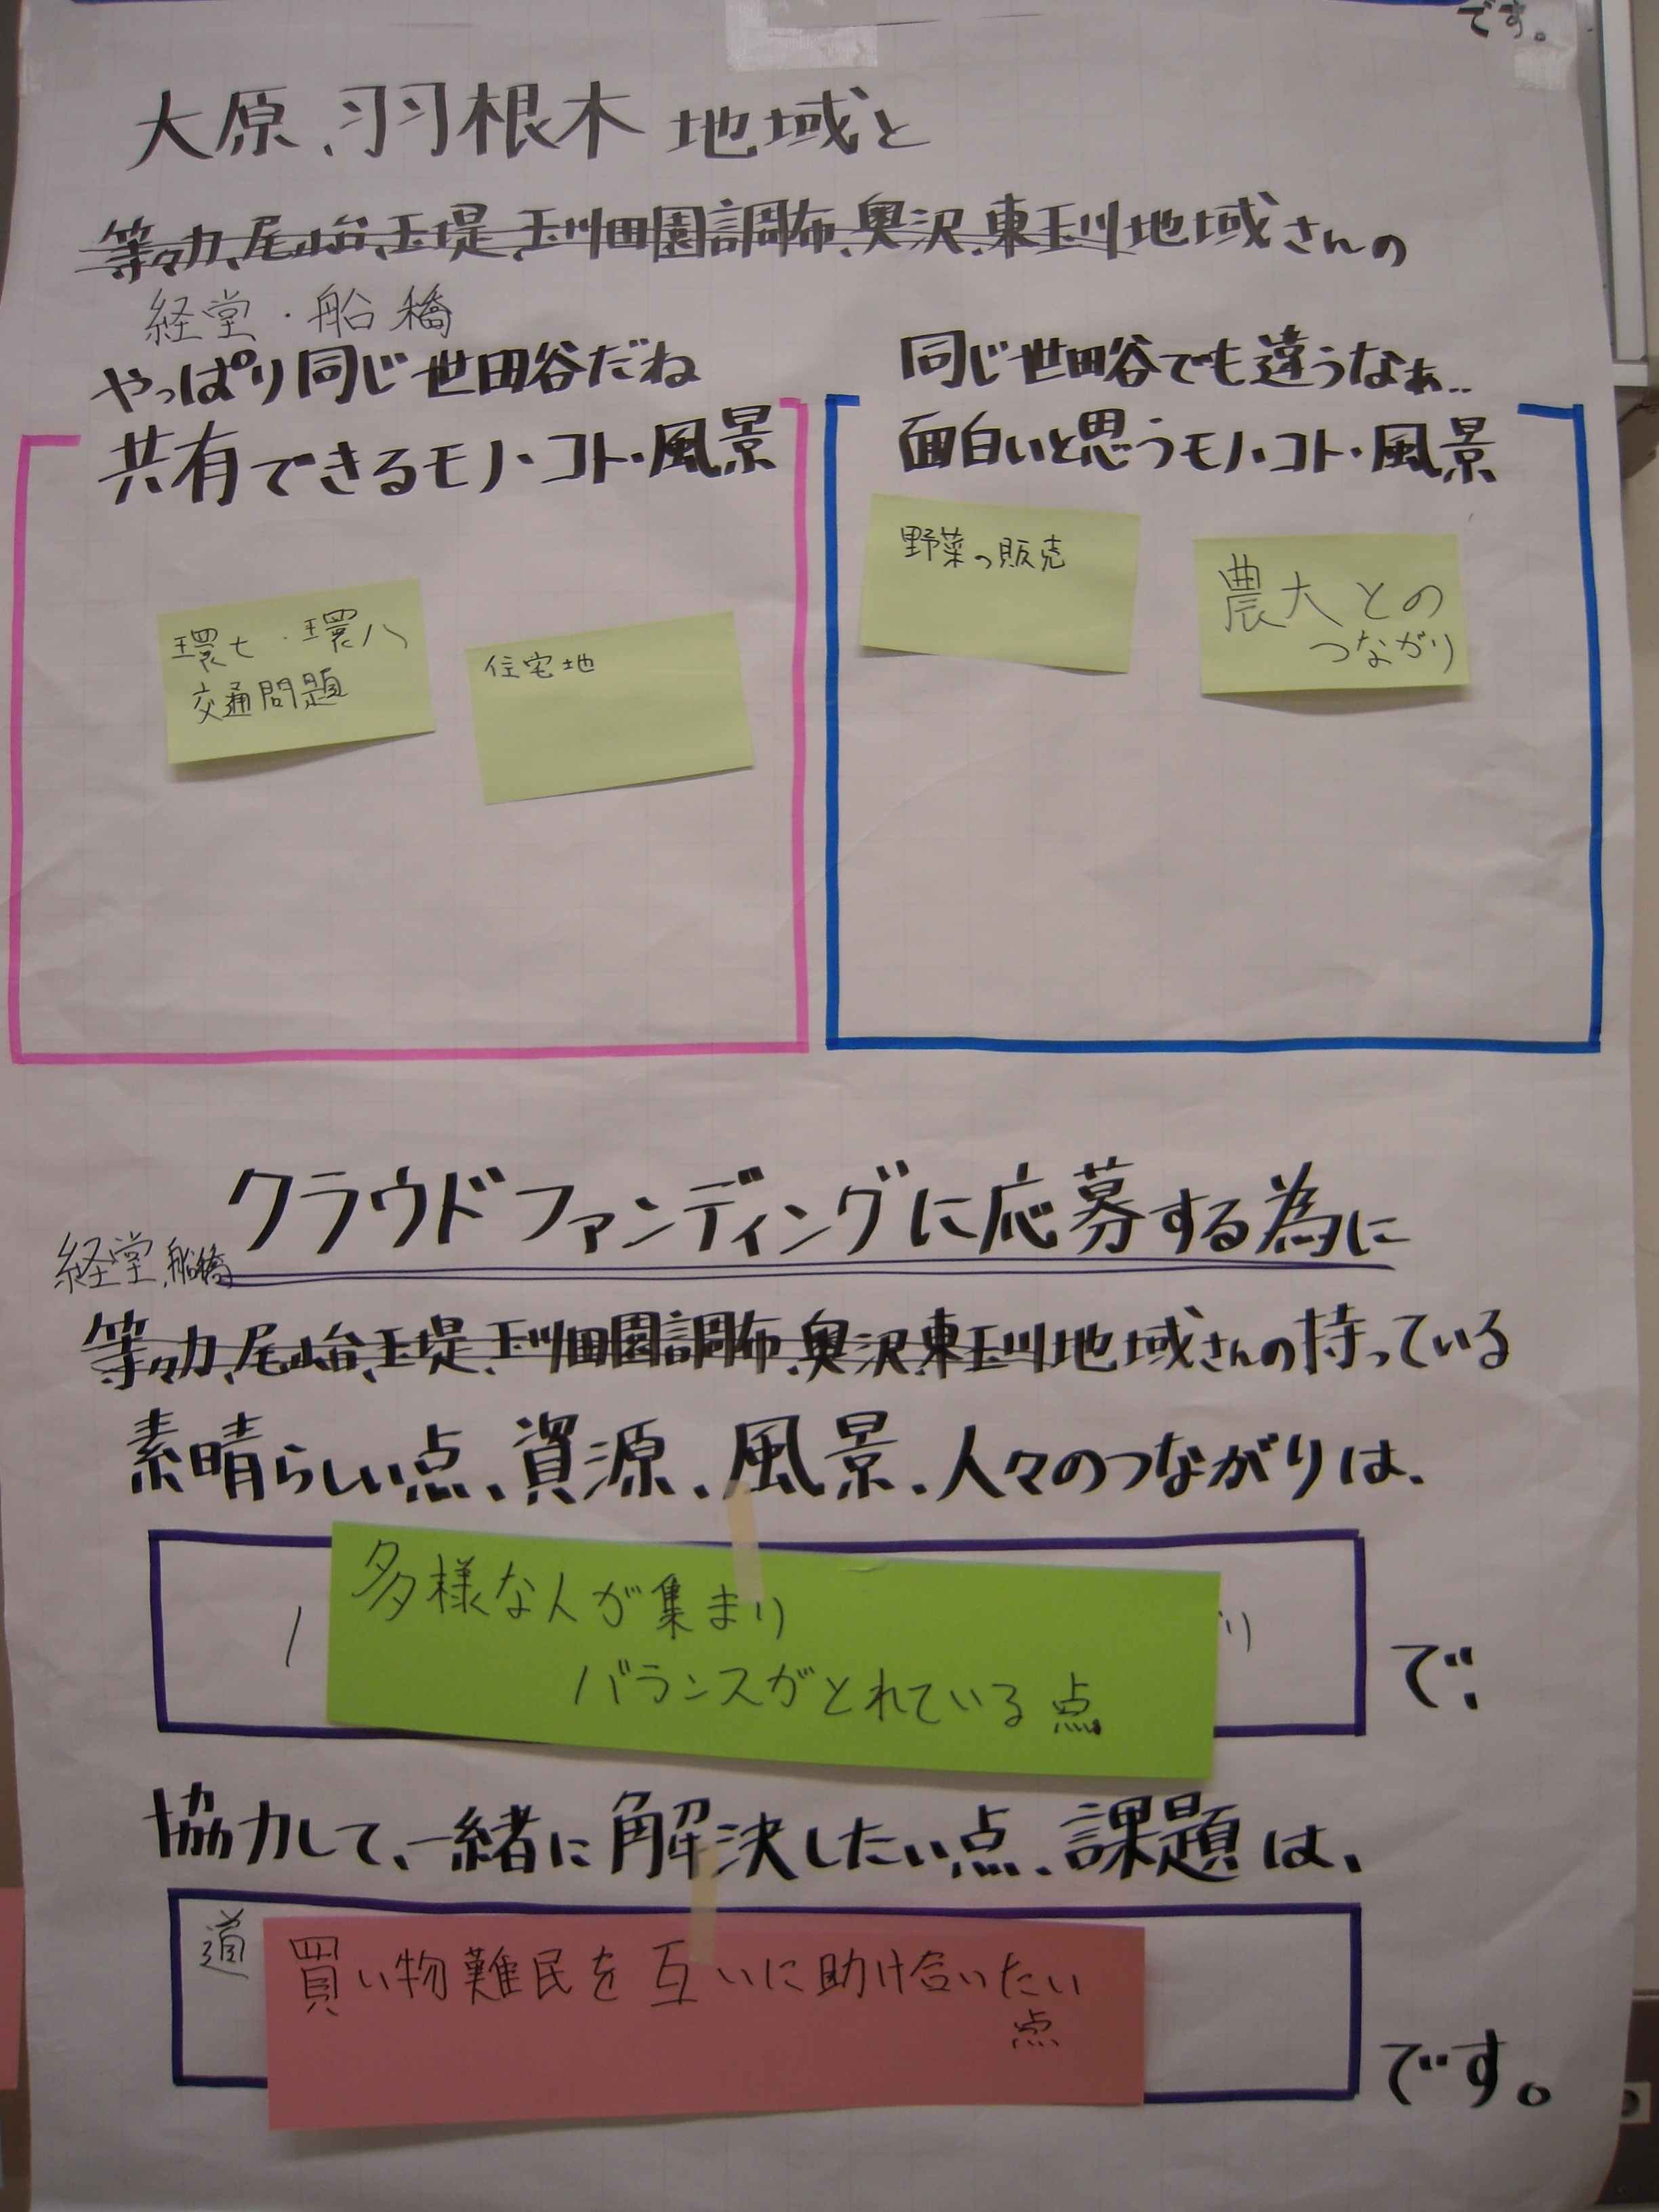 です。
大原、羽根木 地域と
等々力、尾山台、玉堤、玉川田園調布、奥沢、東玉川地域さんの
経堂・船橋
やっぱり同じ世田谷だね
共有できるモノ・コト・風景
環七・環八
交通問題
住宅地
同じ世田谷でも違うなぁ..
面白いと思うモノ・コト・風景
野菜の販売
農大との
つながり
クラウドファンディングに応募する為に
経堂、船橋
等々力、尾山台、玉堤、玉川田園調布、奥沢、東玉川地域さんの持っている
素晴らしい点、資源、風景、人々のつながりは、
多様な人が集まり
バランスがとれている点
で、
協力して、一緒に解決したい点、課題は、
道
買い物難民を互いに助け合いたい
点
です。